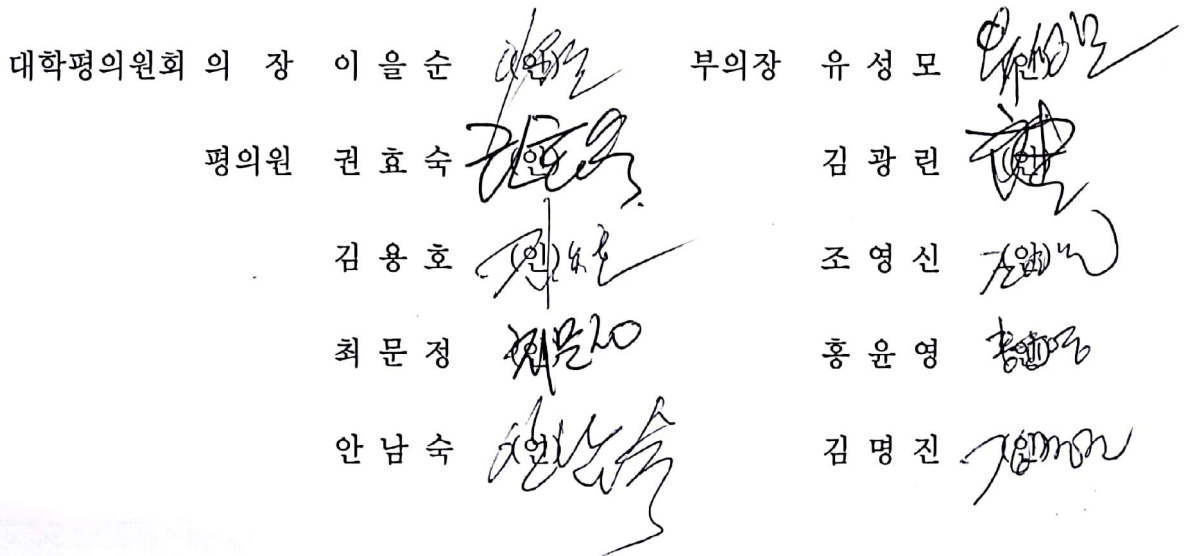 대학평의원회 의 장 이 을 순 (인) 부의장 유 성 모 (인)
평의원 권 효 숙 (인) 김 광 린 (인)
김 용 호 (인) 조 영 신 (인)
최 문 정 (인) 홍 윤 영 (인)
안 남 숙 (인) 김 명 진 (인)